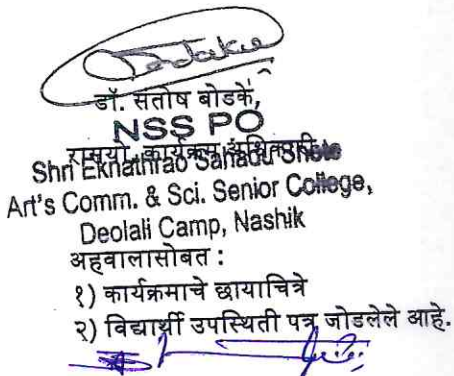 डॉ. संतोष बोडके,
NSS PO
रासेयो. कार्यक्रम अधिकारी
Shri Eknathrao Sahadu Shete
Art's Comm. & Sci. Senior College,
Deolali Camp, Nashik
अहवालासोबत :
१) कार्यक्रमाचे छायाचित्रे
२) विद्यार्थी उपस्थिती पत्र जोडलेले आहे.